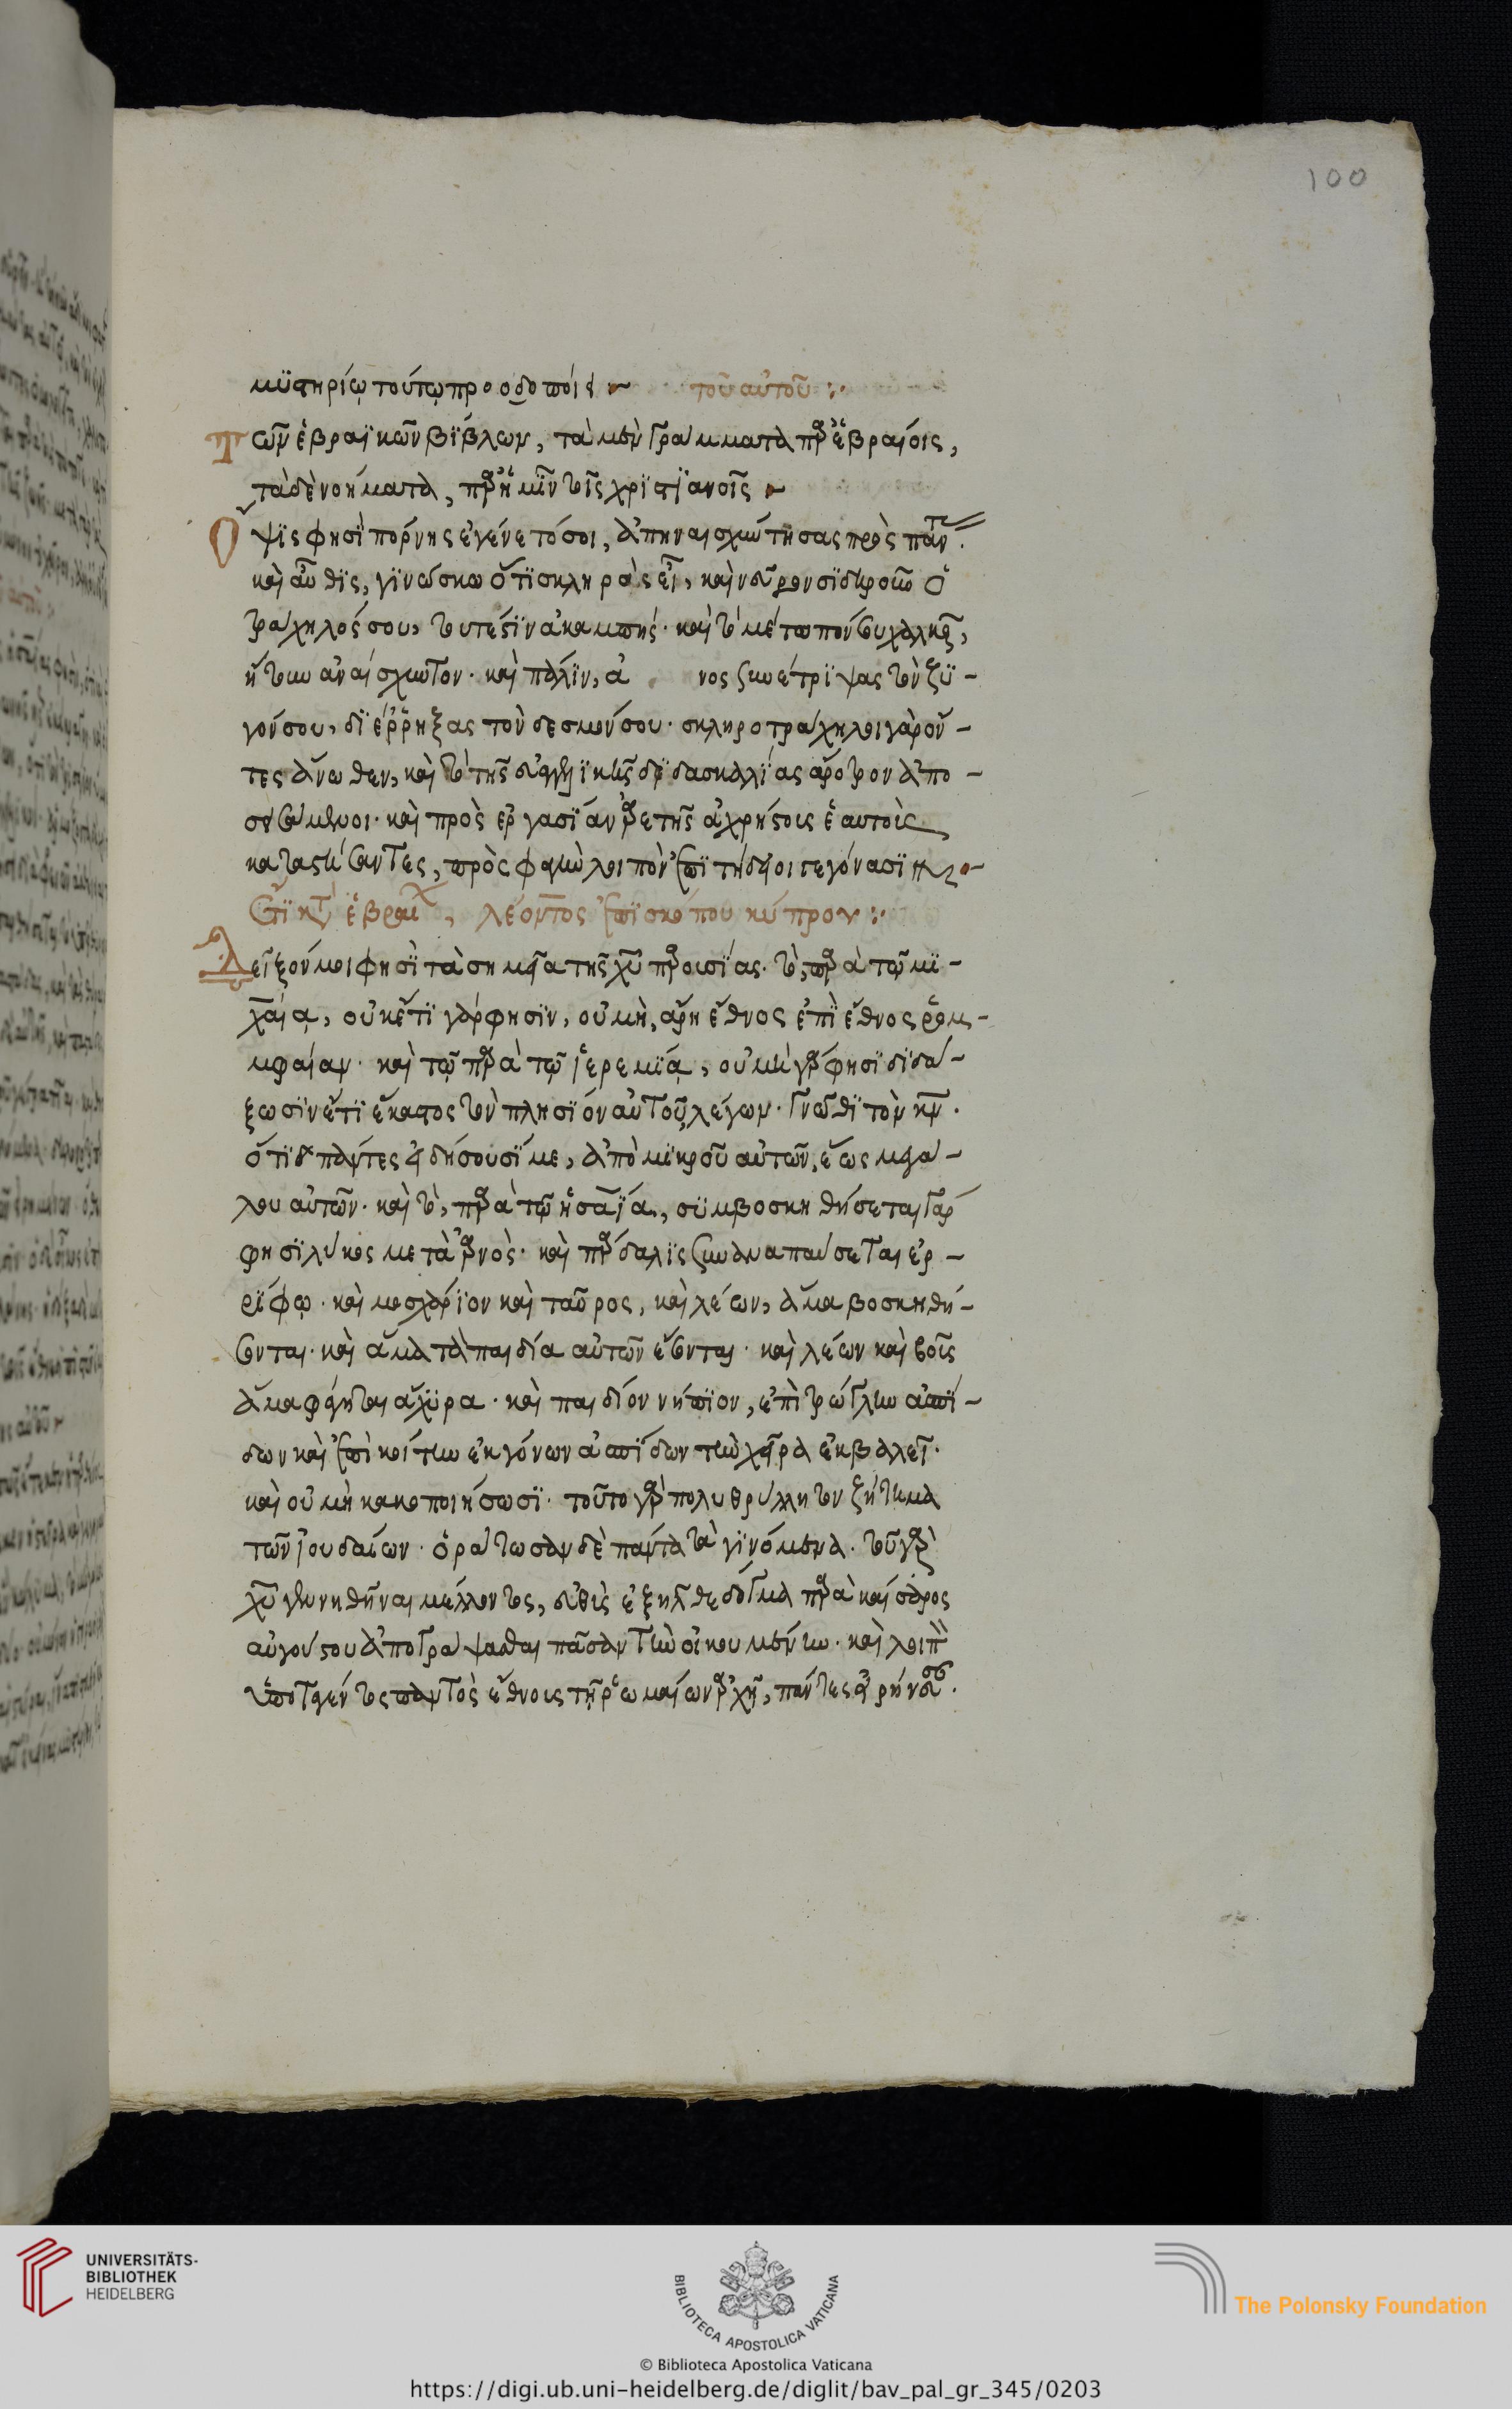 100
μϋστηρίω τούτω προοδοποιεῖ τοῦ αὐτοῦ :·
Τῶν ἑβραϊκῶν βίβλων, τὰ μὲν γράμματα παρ' ἑβραίοις,
τὰ δὲ νοήματα, παρ' ἡμῖν τοῖς χριστϊανοῖς
Ὄψϊς φησὶ πόρνης ἐγένετό σοι, ἀπηναισχύντησας πρὸς πάντ.
καὶ αὖθϊς, γϊνώσκω ὅτϊ σκληρὸς εἶ, καὶ νεῦρον σϊδηροῦν ὁ
τράχηλός σου, τουτέστϊν ἀκαμπής· καὶ τὸ μέτωπόν σου χαλκοῦν,
ἤτοι ἀναίσχυντον· καὶ πάλϊν, ἀ νος συνέτρϊψας τὸν ζϋ-
γόν σου, δϊέρρηξας τὸν δεσμόν σου· σκληροτράχηλοι γὰρ ὄν-
τες ἄνωθεν, καὶ τὸ τῆς εὐαγγελϊκῆς δϊδασκαλίας ἄροτρον ἀπο-
σεισάμενοι· καὶ πρὸς ἐργασίαν ἀρετῆς ἀχρήστους ἑαυτοὺς
καταστήσαντες, πρὸς σφαγὴν λοιπὸν ἐπϊτήδειοι γεγόνασϊν
λέοντος ἐπϊσκόπου κύπρου :·
Δεῖξόν μοι φησὶ τὰ σημεῖα τῆς χυ παρουσίας· τὸ, παρὰ τῷ μϊ-
χαία, οὐκέτϊ γάρ φησϊν, οὐ μὴ, ἄρη ἔθνος ἐπὶ ἔθνος ῥομ-
μφαίαν· καὶ τῷ παρὰ τῷ ἱερεμία, οὐ μὴ γάρ φησϊ δϊδά-
ξωσϊν ἔτϊ ἕκαστος τὸν πλησίον αὐτοῦ λέγων· γνῶθϊ τὸν κν·
ὅτϊ πάντες εἰδήσουσί με, ἀπὸ μϊκροῦ αὐτῶν, ἕως μεγά-
λου αὐτῶν· καὶ τὸ, παρὰ τῷ ἡσαΐα, σϋμβοσκηθήσεται γάρ
φησϊ λύκος μετὰ ἀρνός· καὶ πάρδαλϊς συναναπαύσεται ἐρ-
ρίφω· καὶ μοσχάρϊον καὶ ταῦρος, καὶ λέων, ἅμα βοσκηθή-
σονται· καὶ ἅμα τὰ παιδία αὐτῶν ἔσονται· καὶ λέων καὶ βοῦς
ἅμα φάγεται ἄχϋρα· καὶ παιδίον νήπϊον, ἐπὶ τρώγλην ἀσπί-
δων καὶ ἐπὶ κοίτην ἐκγόνων ἀσπίδων τὴν χεῖρα ἐκβαλεῖ·
καὶ οὐ μὴ κακοποιήσωσϊ· τοῦτο γὰρ πολυθρύλλητον ζήτημα
τῶν ἰουδαίων· ὁράτωσαν δὲ πάντα τὰ γϊνόμενα· τοῦ γὰρ
χυ γεννηθῆναι μέλλοντος, εὐθὺς ἐξῆλθε δόγμα παρὰ καίσαρος
αὐγούστου ἀπογράψασθαι πᾶσαν τὴν οἰκουμένην· καὶ λοιπὸν
ὑποταγέντος παντὸς ἔθνους τῇ ῥωμαίων ἀρχῇ, πάντες εἰρήνευσ.
UNIVERSITÄTS-
BIBLIOTHEK
HEIDELBERG
BIBLIOTECA APOSTOLICA VATICANA
The Polonsky Foundation
© Biblioteca Apostolica Vaticana
https://digi.ub.uni-heidelberg.de/diglit/bav_pal_gr_345/0203